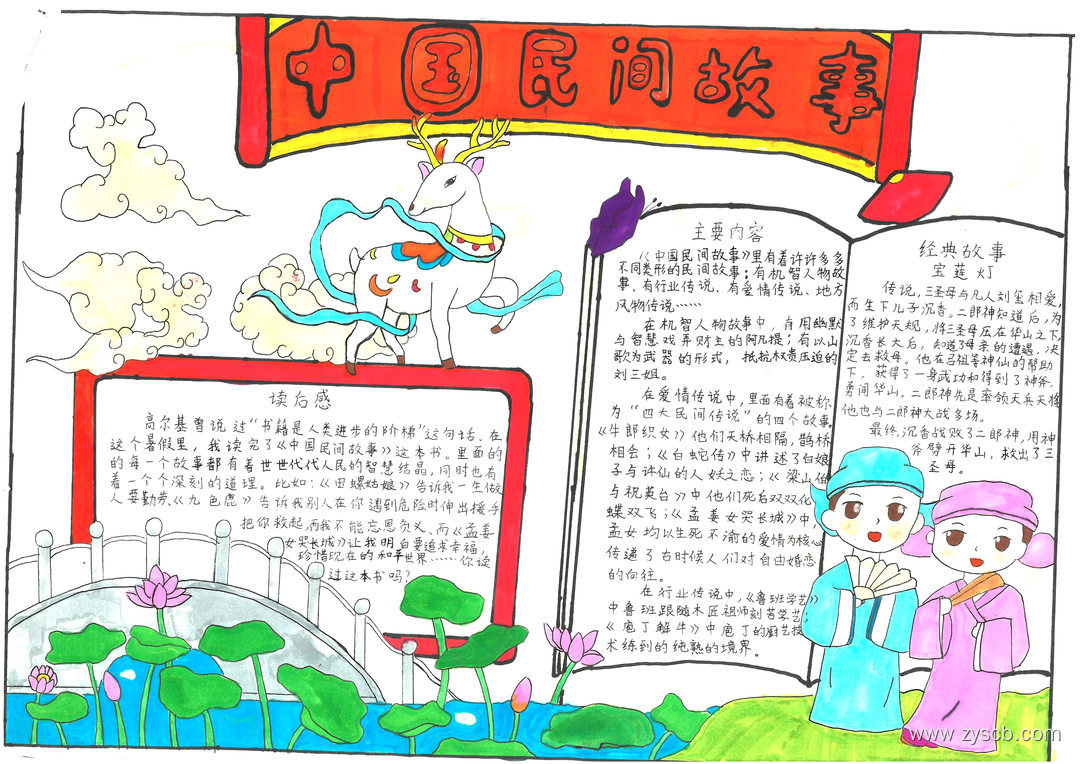 中国民间故事
读后感
高尔基曾说过“书籍是人类进步的阶梯”这句话。在
这个暑假里，我读完了《中国民间故事》这本书。里面的
的每一个故事都有着世世代代人民的智慧结晶，同时也有
着一个个深刻的道理。比如：《田螺姑娘》告诉我一生做
人要勤劳《九色鹿》告诉我别人在你遇到危险时伸出援手
把你救起，而我不能忘恩负义、而《孟姜
女哭长城》让我明白要追求幸福，
珍惜现在的和平世界……你读
过这本书吗？
主要内容
《中国民间故事》里有着许许多多
不同类形的民间故事；有机智人物故
事、有行业传说、有爱情传说、地方
风物传说……
在机智人物故事中，有用幽默
与智慧戏弄财主的阿凡提；有以山
歌为武器的形式，抵抗权贵压迫的
刘三姐。
在爱情传说中，里面有着被称
为“四大民间传说”的四个故事。
《牛郎织女》他们天桥相隔，鹊桥
相会；《白蛇传》中讲述了白娘
子与许仙的人妖之恋；《梁山伯
与祝英台》中他们死后双双化
蝶双飞；《孟姜女哭长城》中，
孟女均以生死不渝的爱情为核心
传递了古时候人们对自由婚恋
的向往。
在行业传说中，《鲁班学艺》
中鲁班跟随木匠祖师刻苦学艺；
《庖丁解牛》中庖丁的厨艺技
术练到的纯熟的境界。
经典故事
宝莲灯
传说，三圣母与凡人刘玺相爱，
而生下儿子沉香。二郎神知道后，为
了维护天规，将三圣母压在华山之下，
沉香长大后，知道了母亲的遭遇，决
定去救母。他在吕祖等神仙的帮助
下，获得了一身武功和得到了神斧，
勇闯华山。二郎神先是率领天兵天将
他也与二郎神大战多场。
最终，沉香战败了二郎神，用神
斧劈开华山，救出了三
圣母。
www.zyscb.com